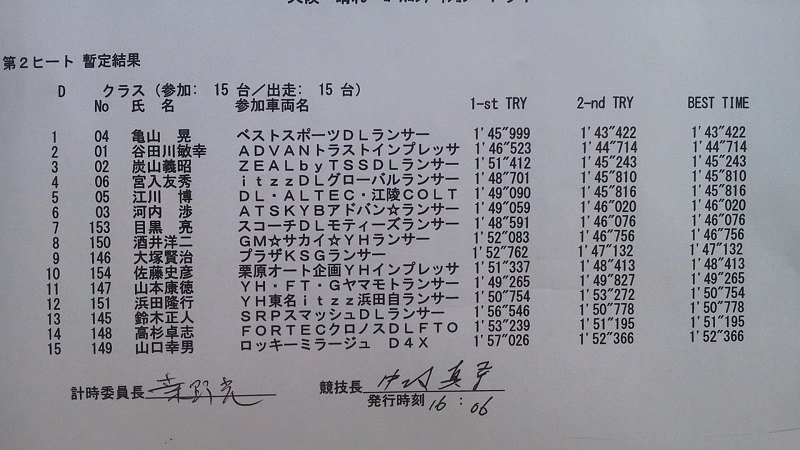 第２ヒート 暫定結果
D クラス（参加： 15 台／出走： 15 台）
No 氏 名 参加車両名 1-st TRY 2-nd TRY BEST TIME
1 04 亀山 晃 ベストスポーツＤＬランサー 1'45"999 1'43"422 1'43"422
2 01 谷田川敏幸 ＡＤＶＡＮトラストインプレッサ 1'46"523 1'44"714 1'44"714
3 02 炭山義昭 ＺＥＡＬｂｙＴＳＳＤＬランサー 1'51"412 1'45"243 1'45"243
4 06 宮入友秀 ｉｔｚｚＤＬグローバルランサー 1'48"701 1'45"810 1'45"810
5 05 江川 博 ＤＬ・ＡＬＴＥＣ・江陵ＣＯＬＴ 1'49"090 1'45"816 1'45"816
6 03 河内 渉 ＡＴＳＫＹＢアドバン☆ランサー 1'49"059 1'46"020 1'46"020
7 153 目黒 亮 スコーチＤＬモティーズランサー 1'48"591 1'46"076 1'46"076
8 150 酒井洋二 ＧＭ☆サカイ☆ＹＨランサー 1'52"083 1'46"756 1'46"756
9 146 大塚賢治 プラザＫＳＧランサー 1'52"762 1'47"132 1'47"132
10 154 佐藤史彦 栗原オート企画ＹＨインプレッサ 1'51"337 1'48"413 1'48"413
11 147 山本康徳 ＹＨ・ＦＴ・Ｇヤマモトランサー 1'49"265 1'49"827 1'49"265
12 151 浜田隆行 ＹＨ東名ｉｔｚｚ浜田自ランサー 1'50"754 1'53"272 1'50"754
13 145 鈴木正人 ＳＲＰスマッシュＤＬランサー 1'56"546 1'50"778 1'50"778
14 148 高杉卓志 ＦＯＲＴＥＣクロノスＤＬＦＴＯ 1'53"239 1'51"195 1'51"195
15 149 山口幸男 ロッキーミラージュ Ｄ４Ｘ 1'57"026 1'52"366 1'52"366
計時委員長 競技長
発行時刻 16：06